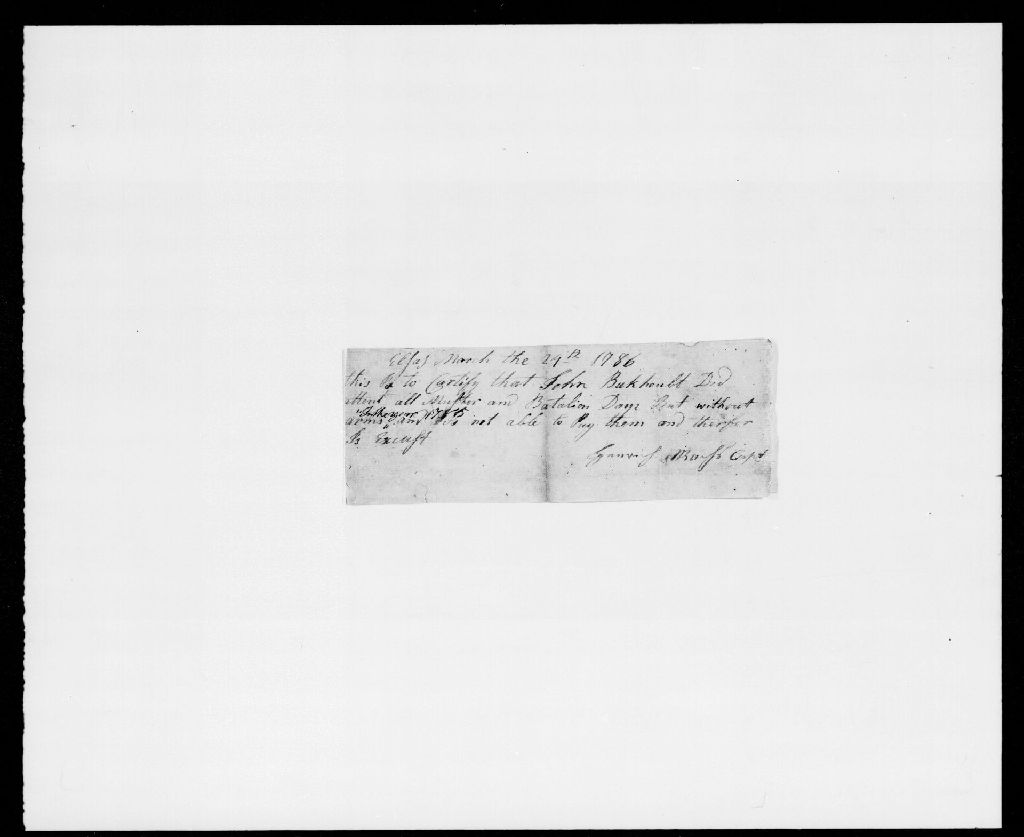 Elsas March the 29th 1786
this Is to Certify that John Bukhoult Did
attent all Muster and Batalion Days But without
In the year 1785
arms and Is not able to Buy them and therfor
Is Excust
Capt